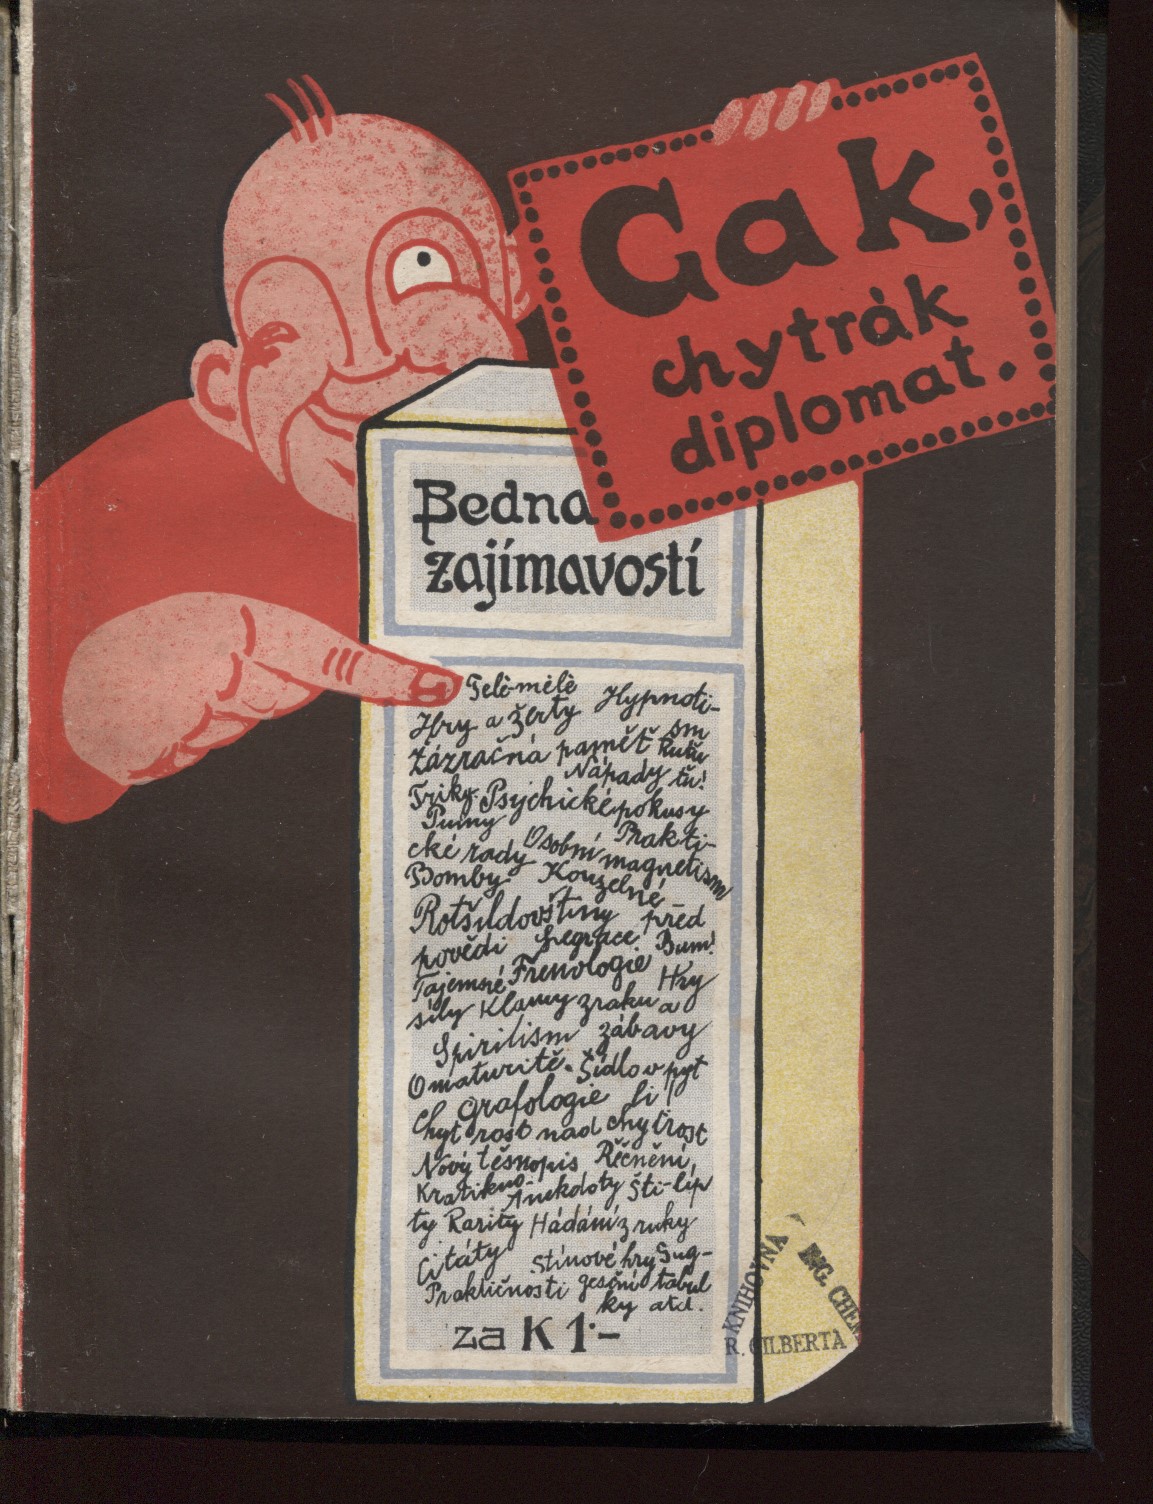 Gak,
chytrák
diplomat.
Bedna
zajímavostí
Telé-mélé
Hry a žerty Hypnoti-
sm
Zázračná paměť Kuku
Nápady tu!
Triky Psychické pokusy
Pumy Prakti-
cké rady Osobní magnetism
Bomby Kouzelné
Rotšildovštiny před
povědi Legrace Bum!
Tajemné Frenologie Hry
síly Klamy zraku a
Spiritism zábavy
O maturitě. Šídlo v pyt
Grafologie li!
Chytrost nad chytrost
Nový těsnopis Řečnění,
Kratikno- Anekdoty Šti-líp
ty Rarity Hádání z ruky
Citáty Stínové hry Sug-
Praktičnosti gesční tabul
ky atd.
za K 1·–
KNIHOVNA
ING. CHEM.
R. GILBERTA